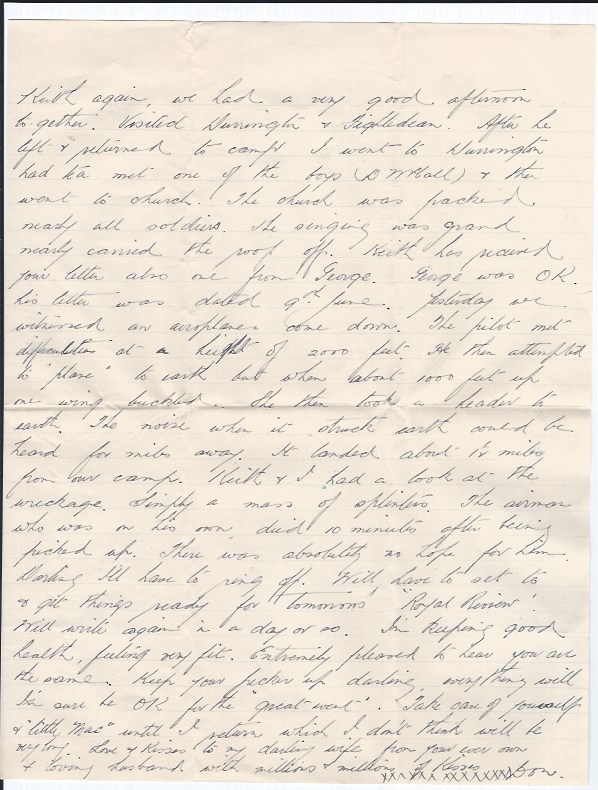 Keith again, we had a very good afternoon
to-gether. Visited Durrington & Figheldean. After he
left & returned to camp I went to Durrington
had tea met one of the boys (D McCall) & then
went to church. The church was packed
nearly all soldiers. The singing was grand
nearly carried the roof off. Keith has recieved
your letter also one from George. George was OK.
his letter was dated 9th June. Yesterday we
witnessed an aeroplane come down. The pilot met
difficulties at a height of 2000 feet. He then attempted
to "plane" to earth but when about 1000 feet up
one wing buckled.. She then took a header to
earth. The noise when it struck earth could be
heard for miles away. It landed about miles
from our camp. Keith & I had a look at the
wreckage. Simply a mass of splinters. The airman
who was on his own, died 10 minutes after being
picked up. There was absolutely no hope for him.
Darling I'll have to ring off. Will have to set to
& get things ready for tomorrows "Royal Review".
Will write again in a day or so. I'm keeping good
health, feeling very fit. Extremely pleased to hear you are
the same. Keep your pecker up darling, everything will
I'm sure be OK for the "great event". Take care of yourself
& "little Mac" until I return which I don't think will be
very long. Love & kisses to my darling wife from your ever own
& loving husband with millions & millions of kisses Don.
xxxxxx xxxxxxxxx